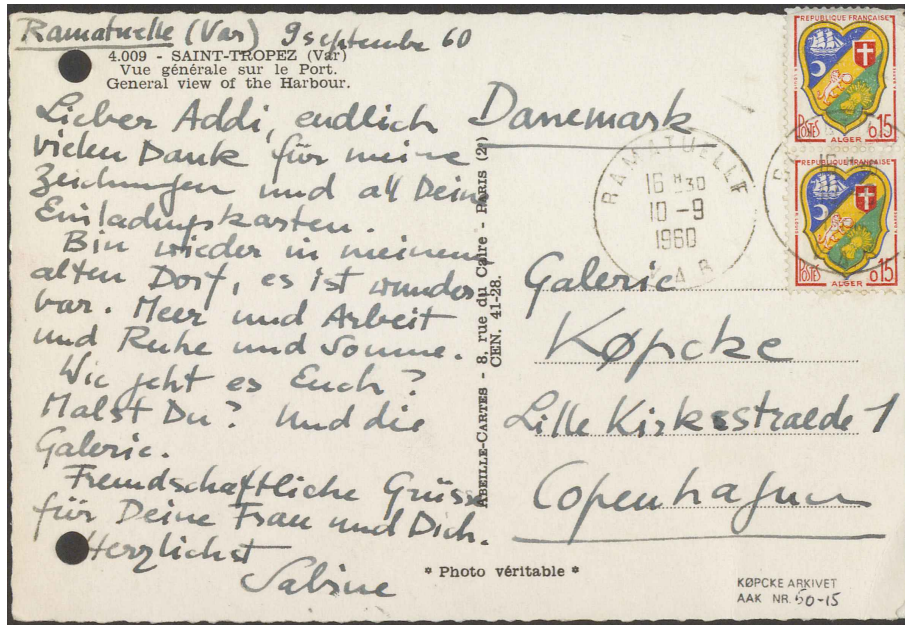 Ramatuelle (Var) 9 septembre 60
4.009 - SAINT-TROPEZ (Var)
Vue générale sur le Port.
General view of the Harbour.
Lieber Addi, endlich
vielen Dank für meine
Zeichnungen und all Deine
Einladungskarten.
Bin wieder in meinem
alten Dorf, es ist wunder
bar. Meer und Arbeit
und Ruhe und Sonne.
Wie geht es Euch?
Malst Du? Und die
Galerie.
Freundschaftliche Grüsse
für Deine Frau und Dich.
Herzlichst
Sabine
ABEILLE-CARTES - 8, rue du Caire - PARIS (2e)
CEN. 41-28.
* Photo véritable *
REPUBLIQUE FRANÇAISE
POSTES 0,15
ALGER
REPUBLIQUE FRANÇAISE
POSTES 0,15
ALGER
RAMATUELLE
16 H 30
10 - 9
1960
Danemark
Galerie
Køpcke
Lille Kirkestraede 1
Copenhague
KØPCKE ARKIVET
AAK NR. 50-15